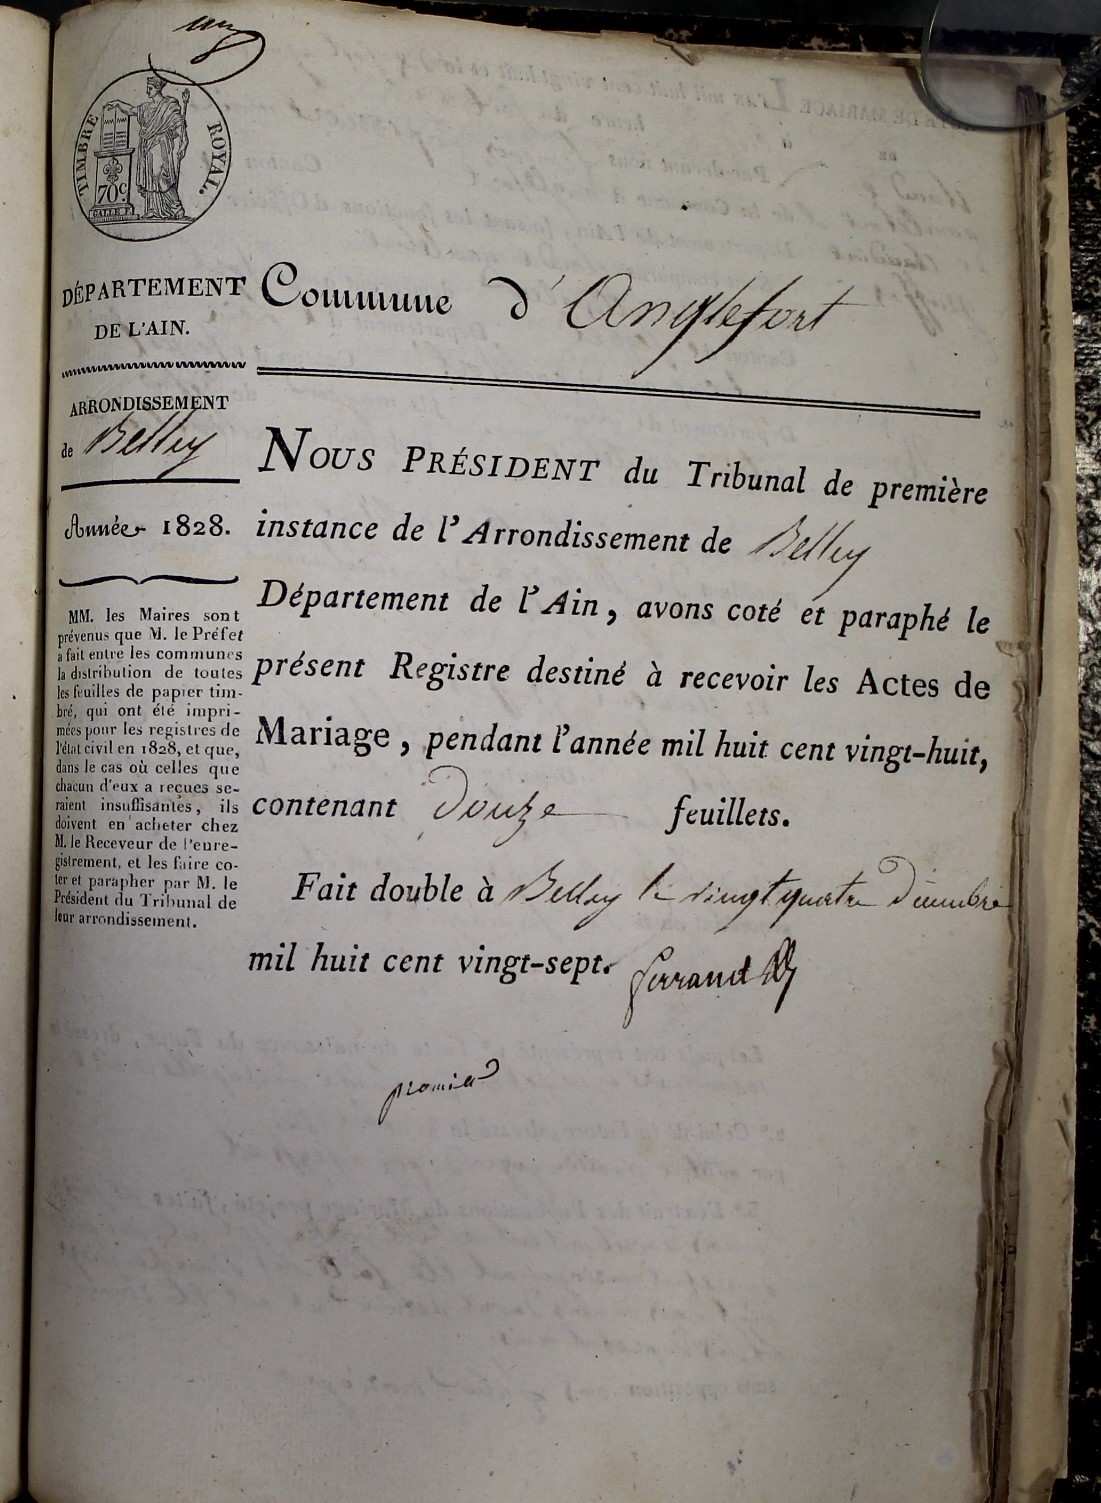 TIMBRE ROYAL.
70 c.
DÉPARTEMENT
DE L'AIN.
Commune d'Anglefort
ARRONDISSEMENT
de Belley
Année 1828.
MM. les Maires sont
prévenus que M. le Préfet
a fait entre les communes
la distribution de toutes
les feuilles de papier tim-
bré, qui ont été impri-
mées pour les registres de
l'état civil en 1828, et que,
dans le cas où celles que
chacun d'eux a reçues se-
raient insuffisantes, ils
doivent en acheter chez
M. le Receveur de l'enre-
gistrement, et les faire co-
ter et parapher par M. le
Président du Tribunal de
leur arrondissement.
NOUS PRÉSIDENT du Tribunal de première
instance de l'Arrondissement de Belley
Département de l'Ain, avons coté et paraphé le
présent Registre destiné à recevoir les Actes de
Mariage, pendant l'année mil huit cent vingt-huit,
contenant Douze feuillets.
Fait double à Belley le vingt quatre Décembre
mil huit cent vingt-sept. Ferrand
premier